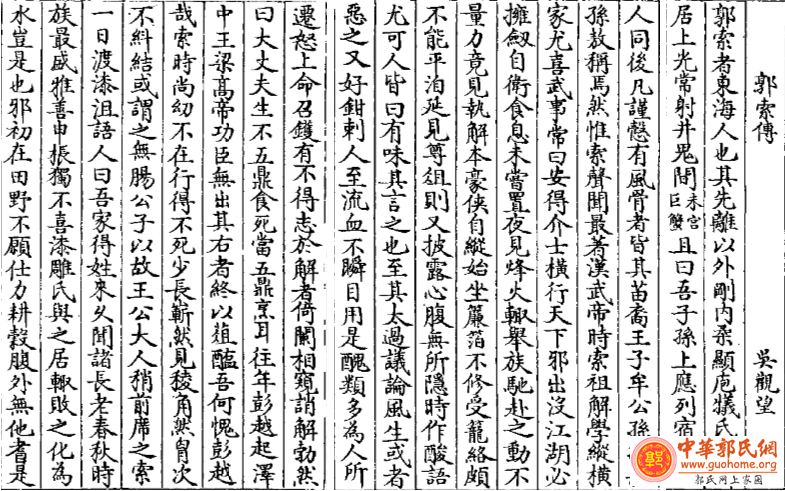 郭索傳 吳觀望
郭索者東海人也其先離以外剛內柔顯庖犧氏
居上光常射井鬼間未宮巨蟹且曰吾子孫上應列宿
人同後凡謹愨有風骨者皆其苗裔王子牟公孫
孫敖稱焉然惟索聲聞最著漢武帝時索祖解學縱橫
家尤喜武事常曰安得介士橫行天下邪出沒江湖必
擁劒自衛食息未嘗置夜見烽火輒舉族馳赴之動不
量力竟見執解本豪俠自縱始坐簾箔不修受籠絡頗
不能平洎延見尊俎則又披露心腹無所隱時作酸語
尤可人皆曰有味其言之也至其太過議論風生或者
惡之又好鉗剌人至流血不瞬目用是醜類多為人所
遷怒上命召鑊有不得志於解者倚闌相窺誚解勃然
曰大丈夫生不五鼎食死當五鼎烹耳往年彭越起澤
中王梁高帝功臣無出其右者終以葅醢吾何愧彭越
哉索時尚幼不在行得不死少長嶄然見稜角然胷次
不糾結或謂之無腸公子以故王公大人稍前席之索
一日渡漆沮語人曰吾家得姓來久聞諸長老春秋時
族最盛雅善申棖獨不喜漆雕氏與之居輒敗之化為
水豈是也邪初在田野不願仕力耕穀腹外無他耆是
中華郭氏網
www.guohome.org
郭氏网上家园